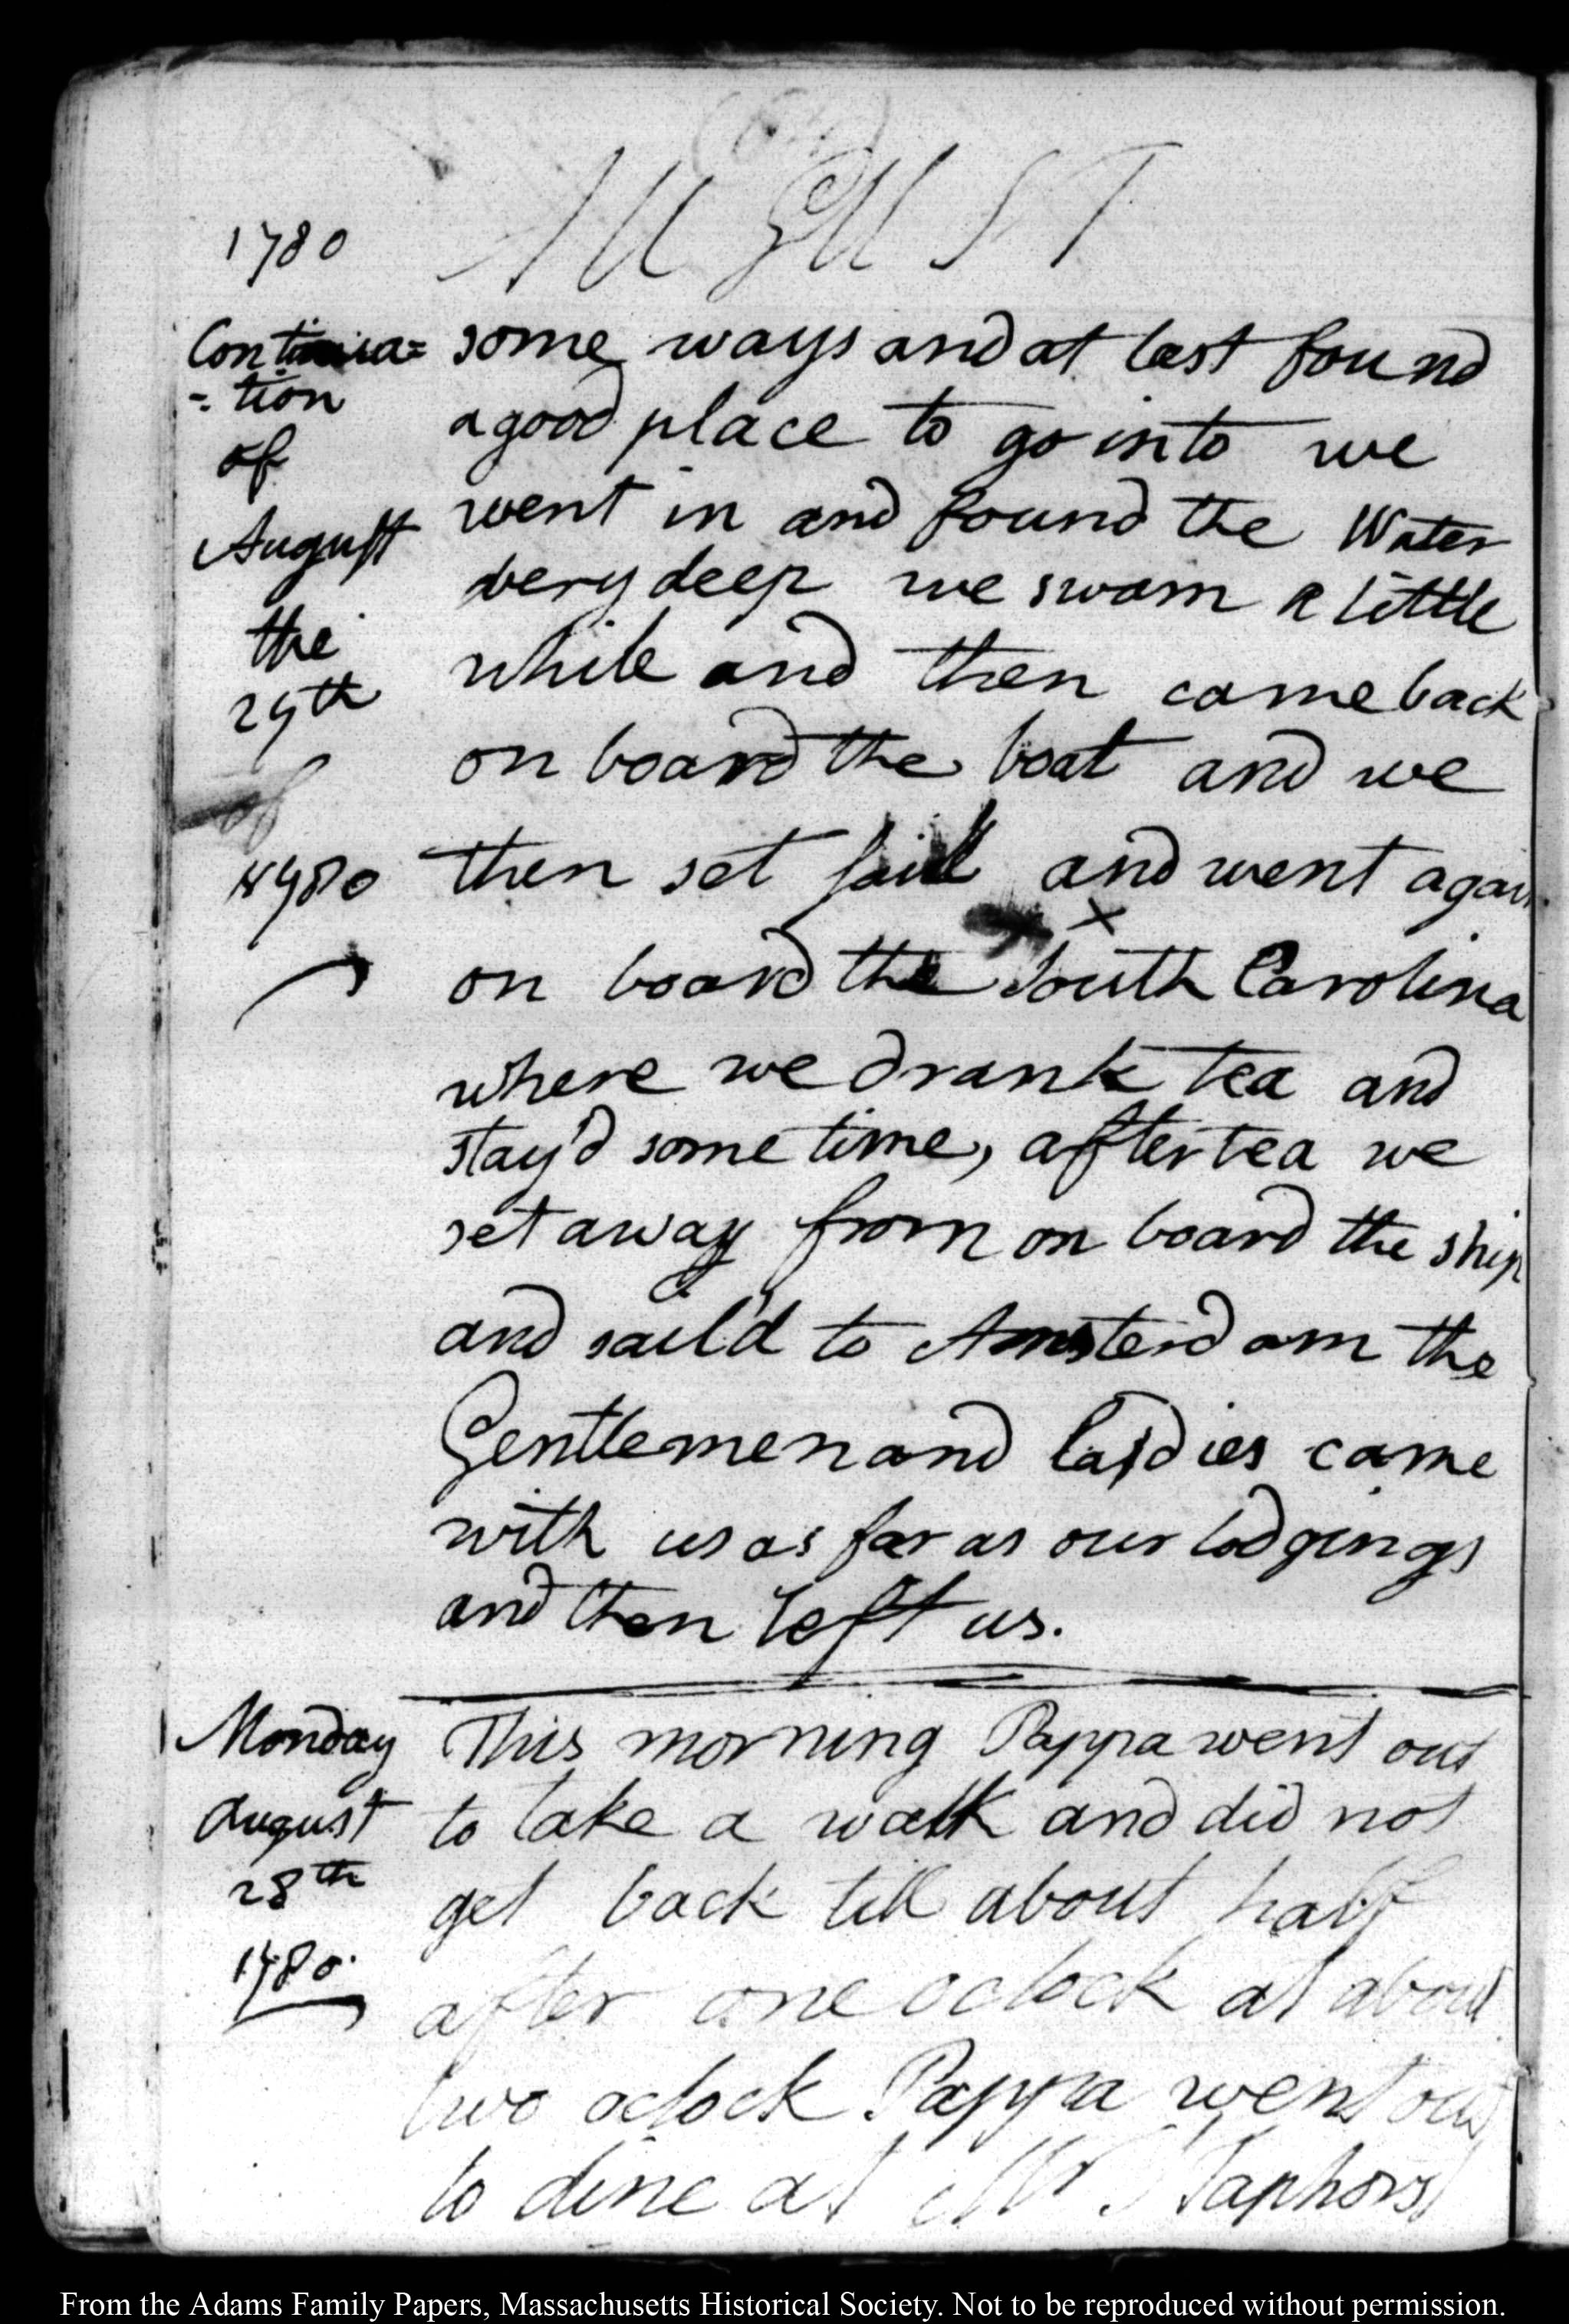 AUGUST
1780
Continua=
=tion
of
August
the
27th
of
1780
some ways and at last found
a good place to go into we
went in and found the Water
very deep we swam a little
while and then came back
on board the boat and we
then set sail and went again
on board the South Carolina
where we drank tea and
stay'd some time, after tea we
set away from on board the ship
and sail'd to Amsterdam the
Gentlemen and ladies came
with us as far as our lodgings
and then left us.
Monday
August
28th
1780.
This morning Pappa went out
to take a walk and did not
get back till about half
after one oclock at about
two oclock Pappa went out
to dine at Mr Staphorst
From the Adams Family Papers, Massachusetts Historical Society. Not to be reproduced without permission.